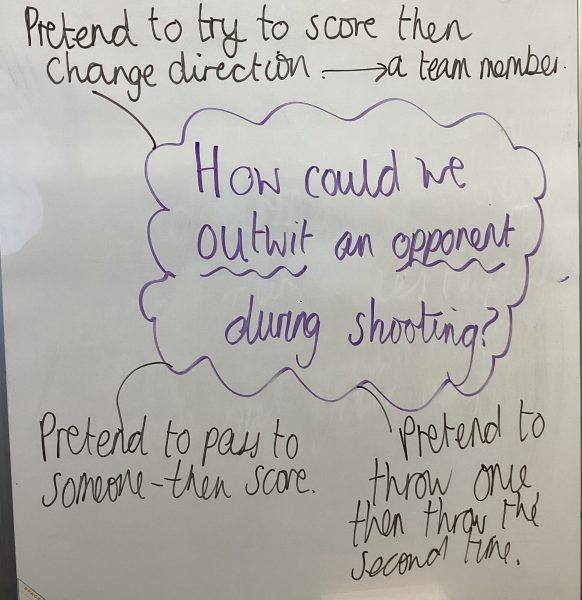 Pretend to try to score then
change direction. → a team member.
How could we
outwit an opponent
during shooting?
Pretend to pass to
someone - then score.
Pretend to
throw one,
then throw the
second time.